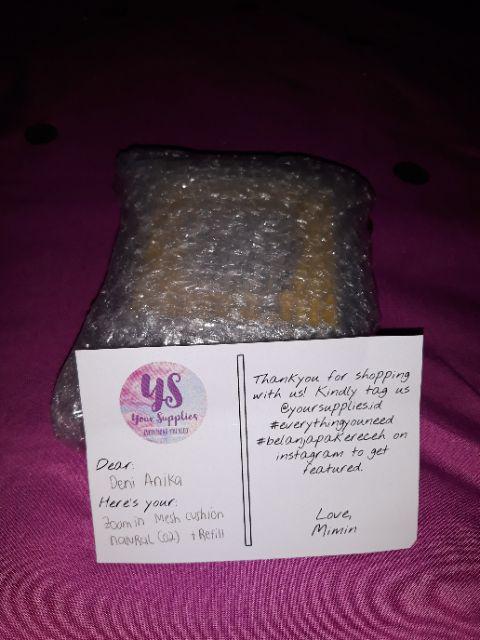 YS
Your Supplies
EVERYTHING YOU NEED
Dear:
Deni Anika
Here's your:
Zoom in Mesh cushion
natural (02) + Refill
Thankyou for shopping
with us! Kindly tag us
@yoursupplies.id
#everythingyouneed
#belanjapakereceh on
instagram to get
featured.
Love,
Mimin